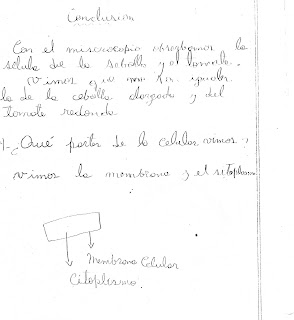 Conclusión
Con el microscopio observamos la
celula de la cebolla y el tomate.
Vimos que no son iguales.
la de la cebolla alargada y del
tomate redonda.
1-¿Qué partes de la celular vimos?
vimos la membrana y el sitoplasma
Membrana Celular
Citoplasma.